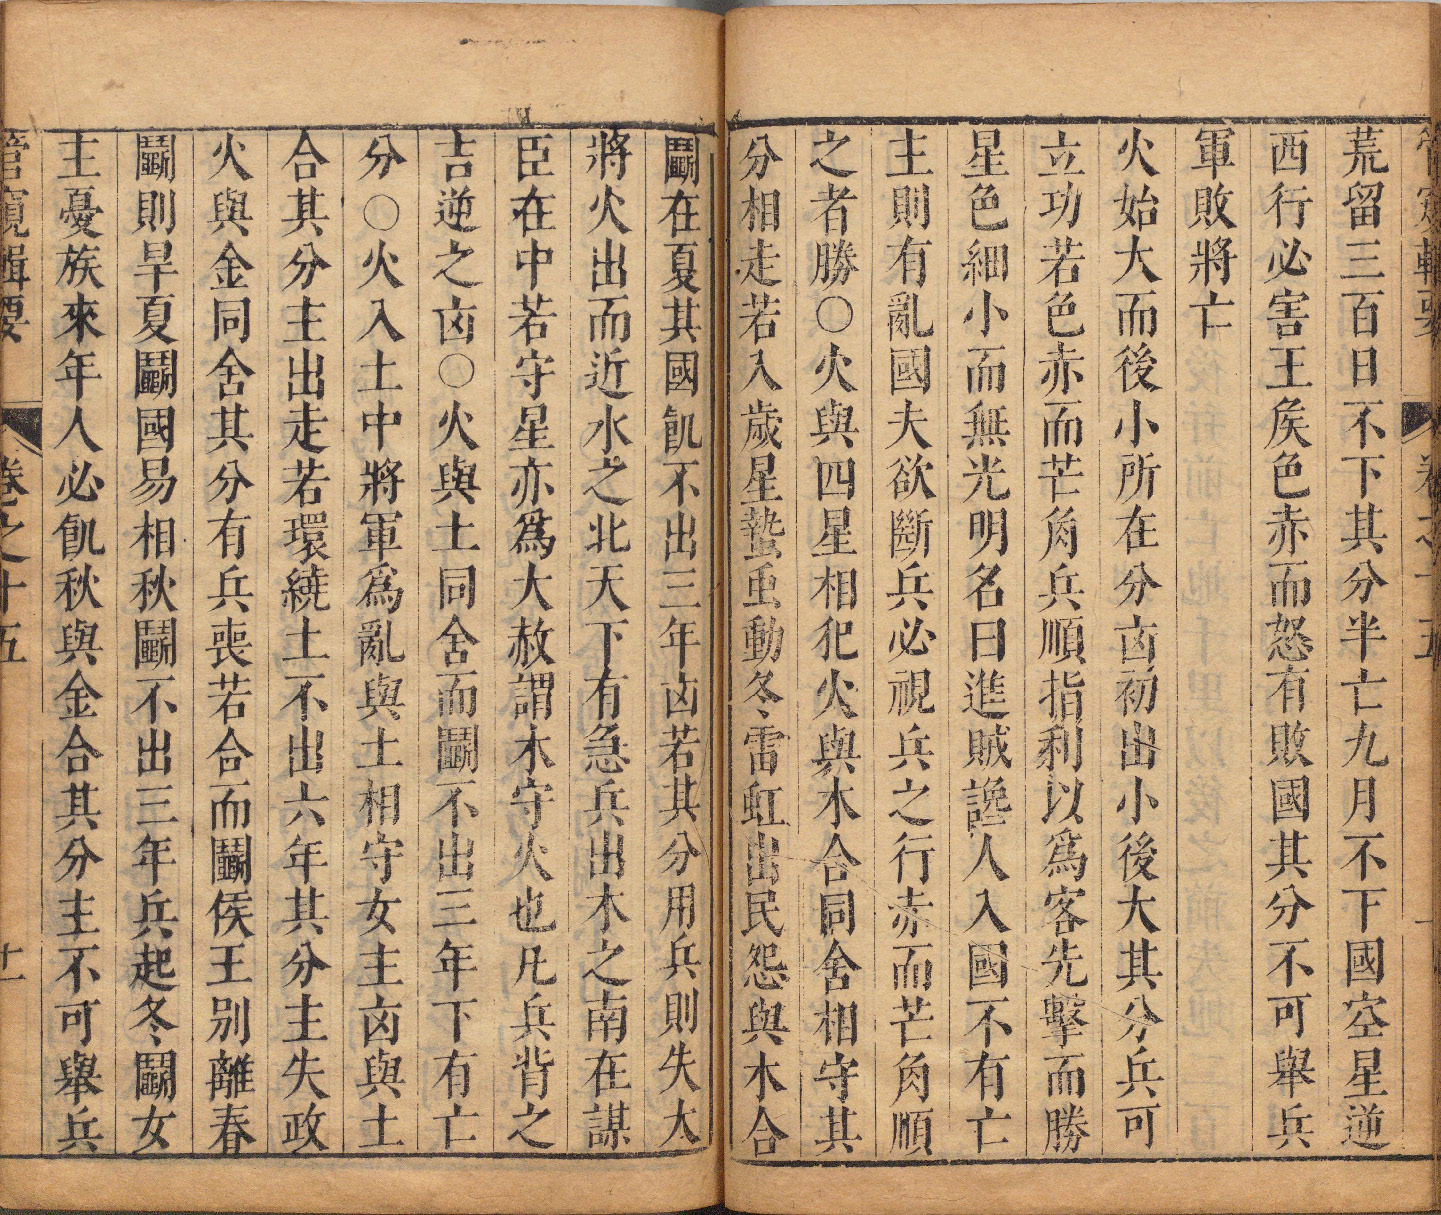 管窺輯要 卷之十五
荒留三百日不下其分半亡九月不下國空星逆
西行必害王矦色赤而怒有敗國其分不可舉兵
軍敗將亡
火始大而後小所在分㐫初出小後大其分兵可
立功若色赤而芒角兵順指利以爲客先擊而勝
星色細小而無光明名曰進賊讒人入國不有亡
主則有亂國夫欲斷兵必視兵之行赤而芒角順
之者勝○火與四星相犯火與木合同舍相守其
分相走若入歲星蟄虫動冬雷虹出民怨與木合
鬭在夏其國飢不出三年㐫若其分用兵則失大
將火出而近水之北天下有急兵出木之南在謀
臣在中若守星亦爲大赦謂木守火也凡兵背之
吉逆之㐫○火與土同舍而鬭不出三年下有亡
分○火入土中將軍爲亂與土相守女主㐫與土
合其分主出走若環繞土不出六年其分主失政
火與金同舍其分有兵喪若合而鬭侯王別離春
鬭則旱夏鬭國易相秋鬭不出三年兵起冬鬭女
主憂族來年人必飢秋與金合其分主不可舉兵
管窺輯要 卷之十五 十一